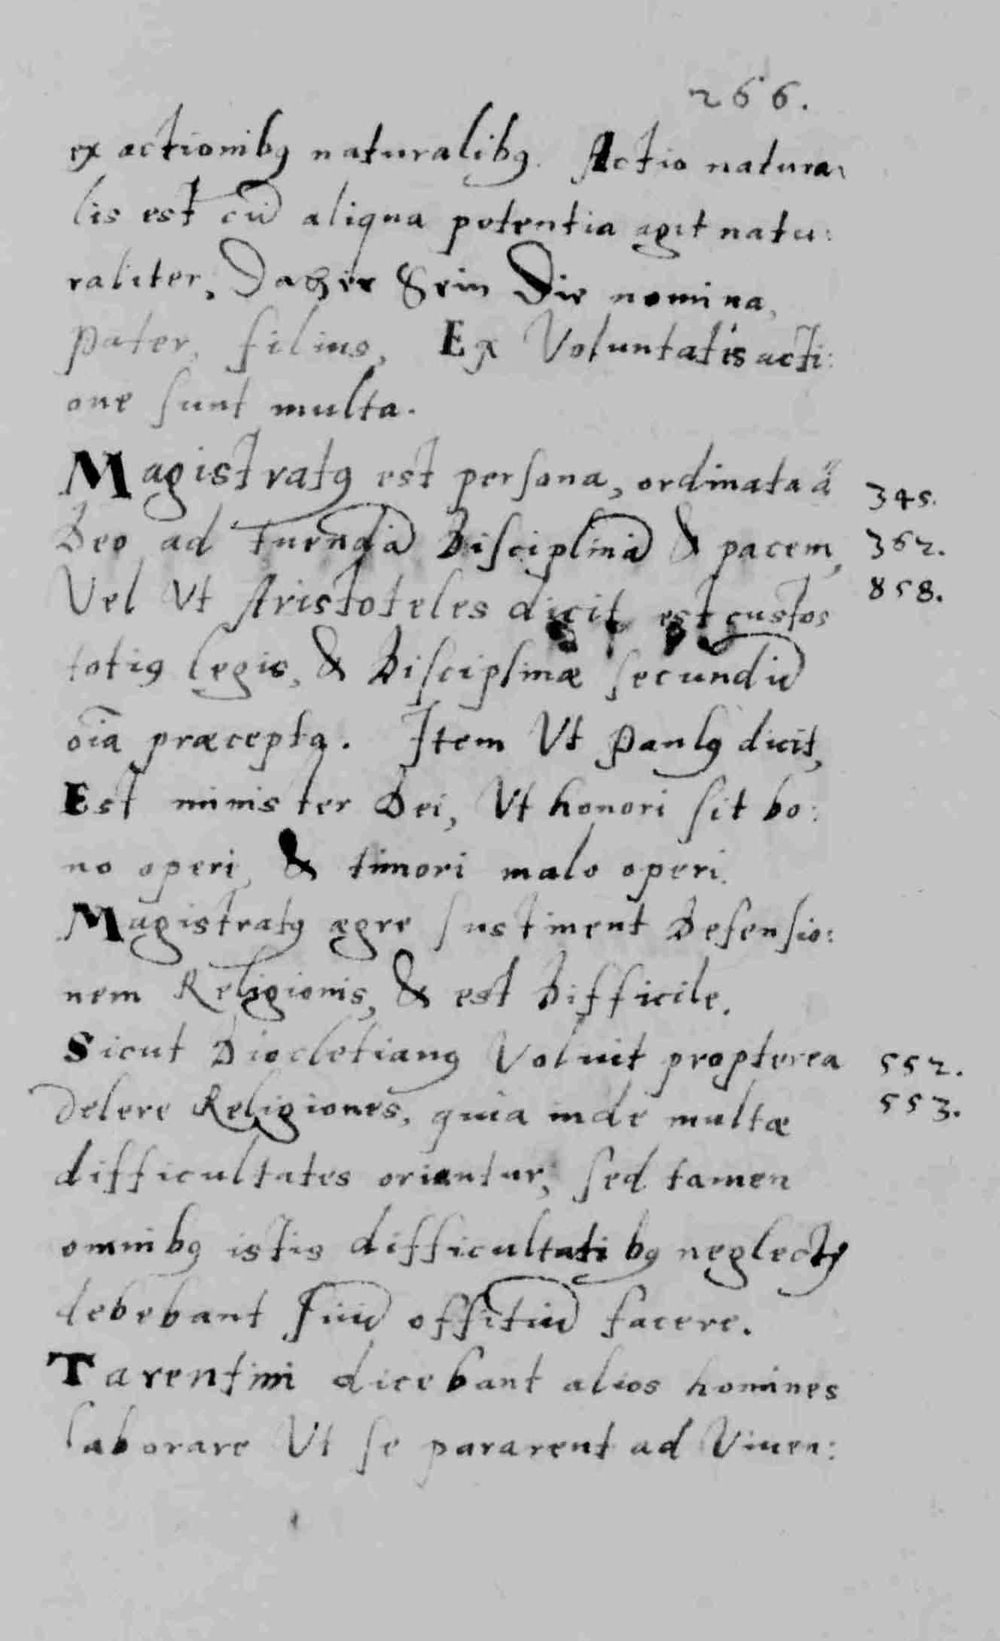 266.
ex actionibꝯ naturalibꝯ. Actio natura:
lis est cū aliqua potentia agit natu:
raliter, Daher sein Die nomina,
Pater, filius, Ex Voluntatis acti:
one sunt multa.
Magistratꝯ est persona, ordinata à 345.
Deo ad tuendā Disciplinā & pacem, 362.
Vel Vt Aristoteles dicit est custos 858.
totiꝯ legis, & Disciplinæ secundū
oīa præcepta. Item Vt Paulꝯ dicit,
Est minister Dei, Vt honori sit bo:
no operi, & timori malo operi.
Magistratꝯ ægre sustinent Defensio:
nem Religionis, & est Difficile.
Sicut Diocletianꝯ Voluit propterea 552.
delere Religiones, quia inde multæ 553.
difficultates oriantur, sed tamen
omnibꝯ istis difficultatibꝯ neglectꝭ
debebant suū offitiū facere.
Tarentini dicebant alios homines
laborare Vt se pararent ad Viuen: